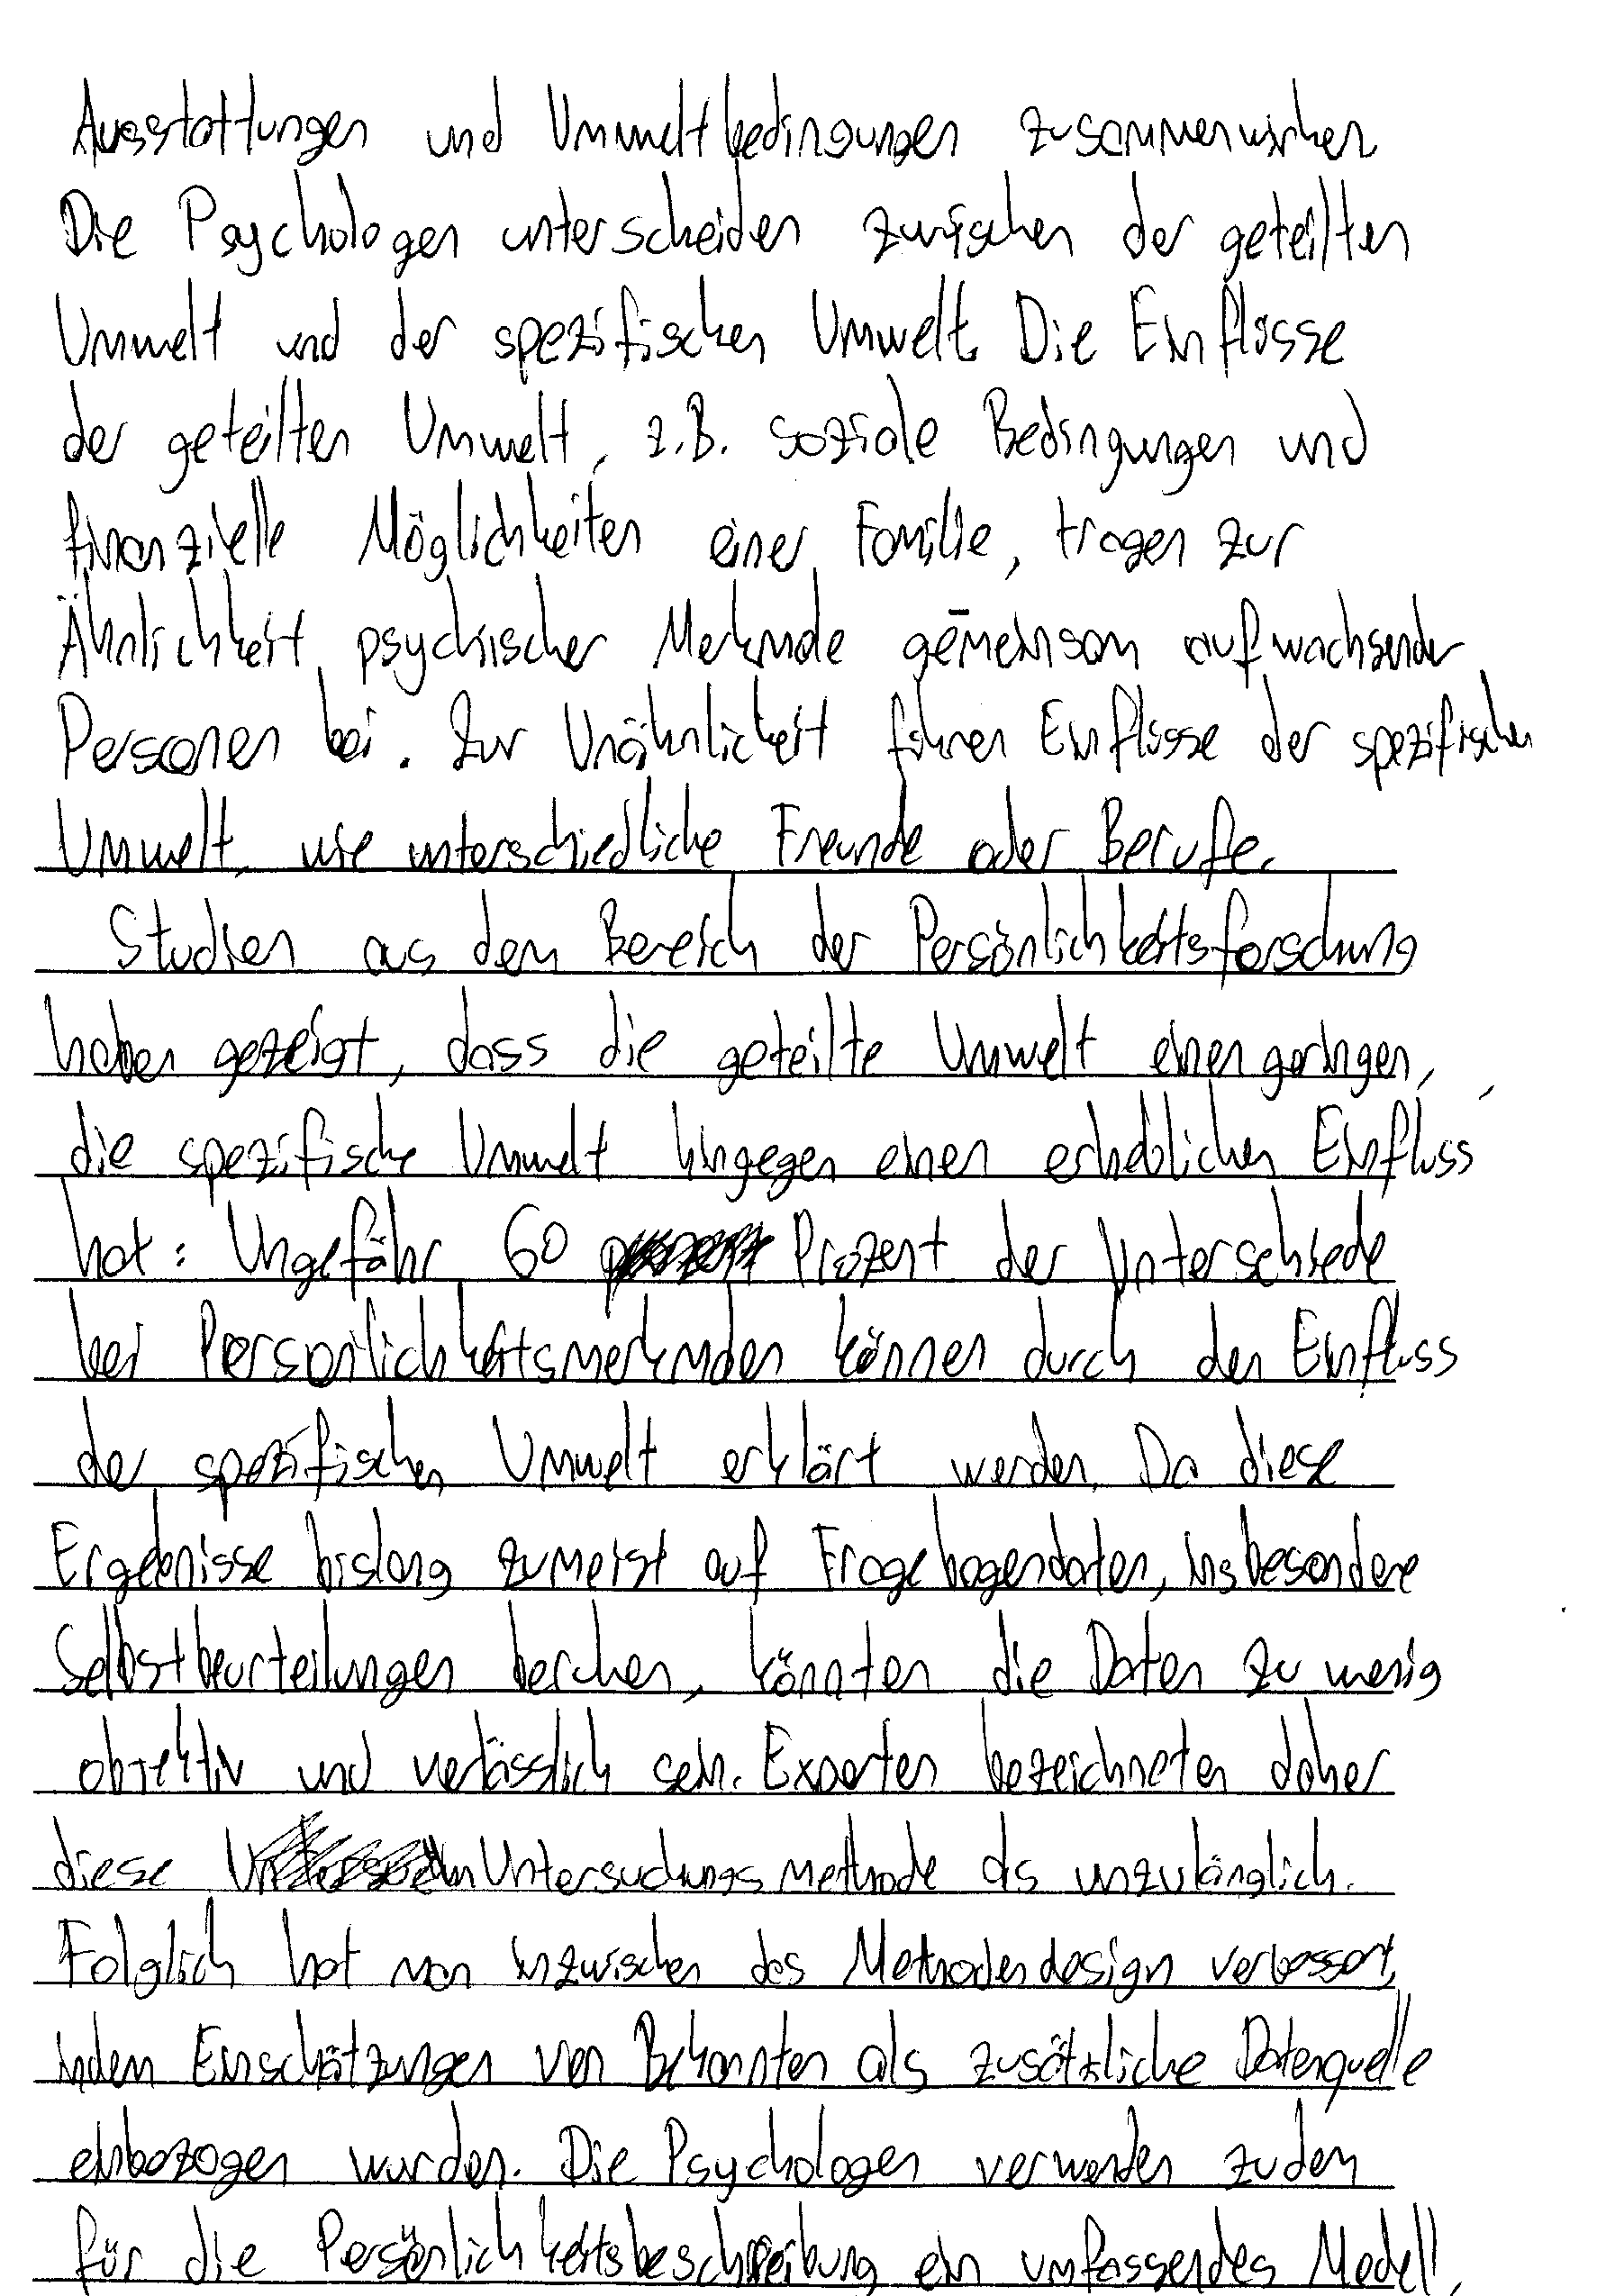 Ausstattungen und Umweltbedingungen zusammenwirken
Die Psychologen unterscheiden zwischen der geteilten
Umwelt und der spezifischen Umwelt. Die Einflüsse
der geteilten Umwelt, z.B. soziale Bedingungen und
finanzielle Möglichkeiten einer Familie, tragen zur
Ähnlichkeit psychischer Merkmale gemeinsam aufwachsender
Personen bei. Zur Unähnlichkeit führen Einflüsse der spezifischen
Umwelt, wie unterschiedliche Freunde oder Berufe.
Studien aus dem Bereich der Persönlichkeitsforschung
haben gezeigt, dass die geteilte Umwelt einen geringen,
die spezifische Umwelt hingegen einen erheblichen Einfluss
hat: Ungefähr 60 Prozent der Unterschiede
bei Persönlichkeitsmerkmalen können durch den Einfluss
der spezifischen Umwelt erklärt werden. Da diese
Ergebnisse bislang zumeist auf Fragebogendaten, insbesondere
Selbstbeurteilungen beruhen, könnten die Daten zu wenig
objektiv und verlässlich sein. Experten bezeichneten daher
diese Untersuchungsmethode als unzulänglich.
Folglich hat man inzwischen das Methodendesign verbessert,
indem Einschätzungen von Bekannten als zusätzliche Datenquelle
einbezogen wurden. Die Psychologen verwenden zudem
für die Persönlichkeitsbeschreibung ein umfassendes Modell,